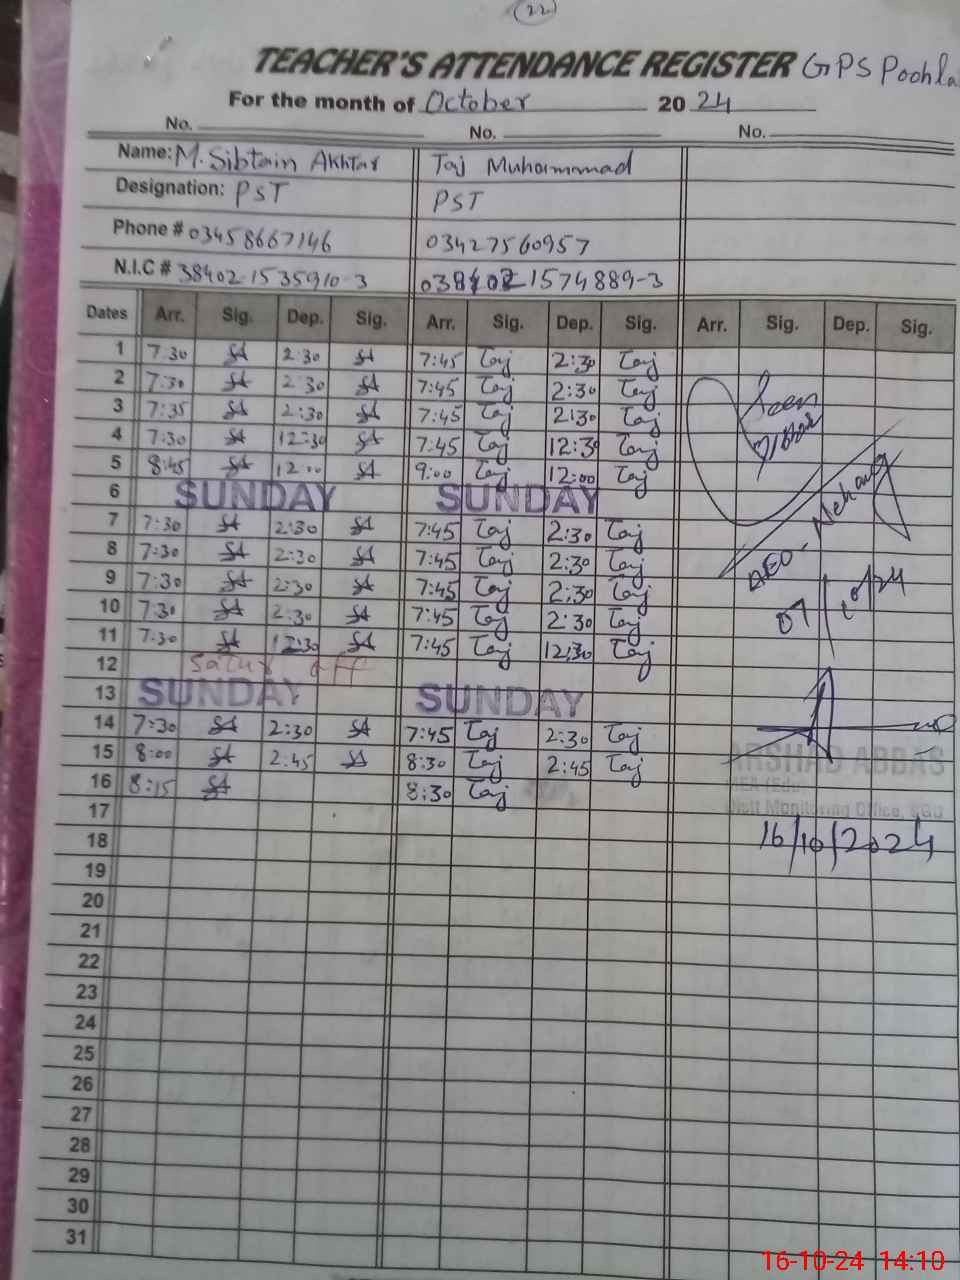 22
TEACHER'S ATTENDANCE REGISTER GPS Poohla
For the month of October 20 24
No. No. No.
Name: M. Sibtain Akhtar Taj Muhammad
Designation: PST PST
Phone # 03458667146 03427560957
N.I.C # 38402-1535910-3 038402 1574889-3
Dates Arr. Sig. Dep. Sig. Arr. Sig. Dep. Sig. Arr. Sig. Dep. Sig.
1 7:30 SA 2:30 SA 7:45 Taj 2:30 Taj
2 7:30 SA 2:30 SA 7:45 Taj 2:30 Taj
3 7:35 SA 2:30 SA 7:45 Taj 2:30 Taj
4 7:30 SA 12:30 SA 7:45 Taj 12:30 Taj
5 8:45 SA 12:00 SA 9:00 Taj 12:00 Taj
6 SUNDAY SUNDAY
7 7:30 SA 2:30 SA 7:45 Taj 2:30 Taj
8 7:30 SA 2:30 SA 7:45 Taj 2:30 Taj
9 7:30 SA 2:30 SA 7:45 Taj 2:30 Taj
10 7:30 SA 2:30 SA 7:45 Taj 2:30 Taj
11 7:30 SA 12:30 SA 7:45 Taj 12:30 Taj
12 Satur off
13 SUNDAY SUNDAY
14 7:30 SA 2:30 SA 7:45 Taj 2:30 Taj
15 8:00 SA 2:45 SA 8:30 Taj 2:45 Taj
16 8:15 SA 8:30 Taj
17
18
19
20
21
22
23
24
25
26
27
28
29
30
31
Seen
AEO-Mehang
07/10/24
ARSHAD ABBAS
MEA (Edu)
Distt Monitoring Office, SGD
16/10/2024
16-10-24 14:10